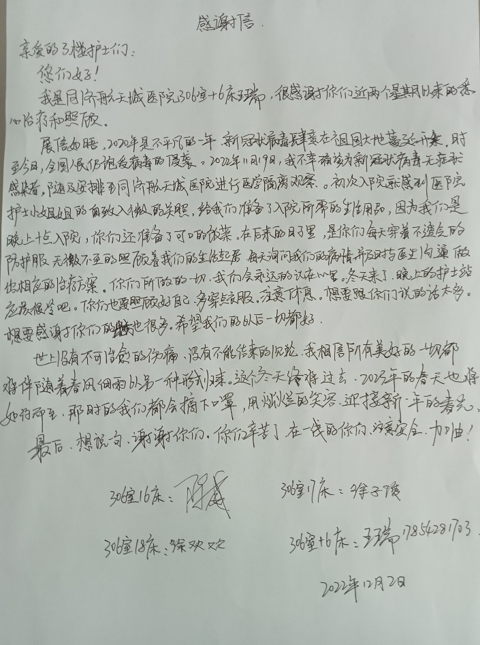 感谢信
亲爱的3楼护士们：
您们好！
我是同济航天城医院306室+6床王瑞，很感谢你们近两个星期以来的悉
心治疗和照顾。
展信如晤，2020年是不平凡的一年，新冠状病毒肆虐在祖国大地蔓延开来，时
至今日，全国人民依饱受病毒的侵袭。2022年11月19日，我不幸确诊为新冠状病毒无症状
感染者，随及安排至同济航天城医院进行医学隔离观察。初次入院就感到医院
护士小姐姐的细致入微的关照，给我们准备了入院所需的生活用品，因为我们是
晚上十点入院，你们还准备了可口的饭菜，在后来的日子里，是你们每天穿着不透气的
防护服，无微不至的照顾着我们的生活起居，每天询问我们的病情并及时与医生沟通做
出相应的治疗方案，你们所做的一切，我们会永远的记在心里，冬天来了，晚上的护士站
应该很冷吧。你们也要照顾好自己，多穿点衣服，注意休息。想要跟你们说的话太多。
想要感谢你们的也很多，希望我们的以后一切都好。
世上没有不可治愈的伤痛，没有不能结束的沉沦，我相信所有美好的一切都
将伴随着春风细雨以另一种形式归来。这个冬天终将过去，2023年的春天也将
如约而至，那时的我们都会摘下口罩，用灿烂的笑容，迎接新一年的春光。
最后，想说一句，谢谢你们，你们辛苦了，在一线的你们，注意安全，加油！
306室16床：
306室17床：徐
306室18床：徐欢欢
306室+6床：王瑞 17854281703
2022年12月2日